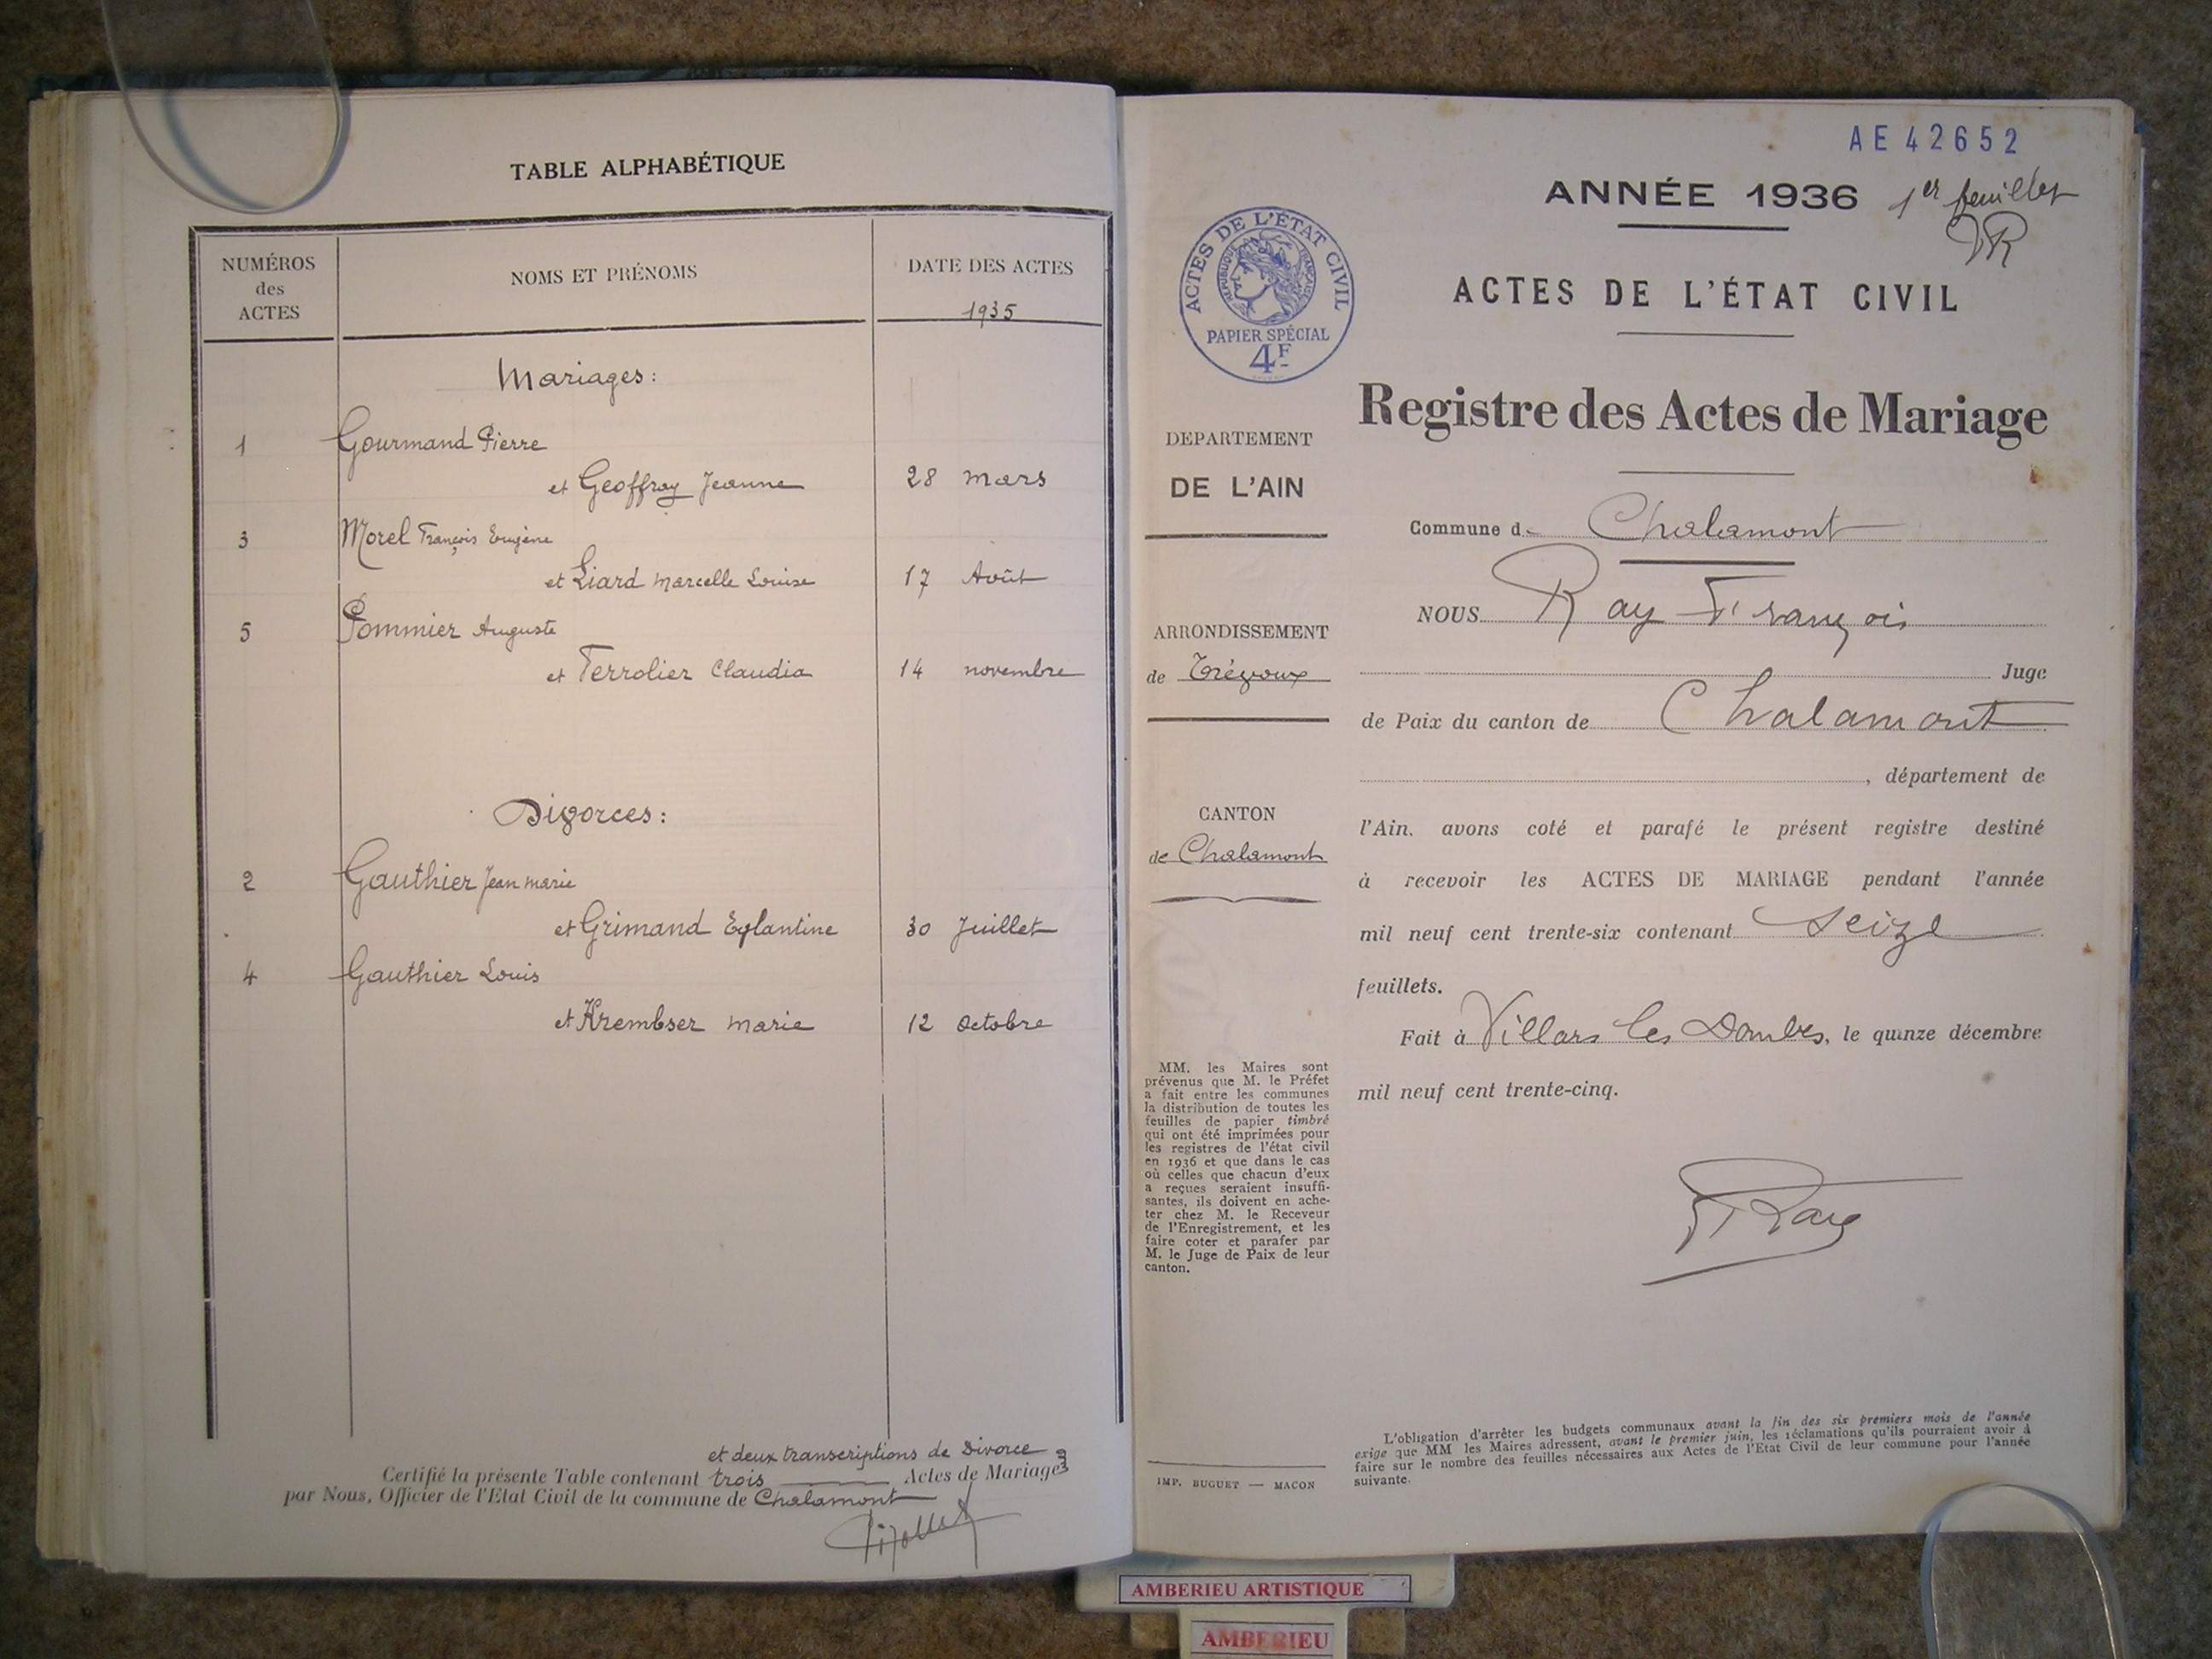 TABLE ALPHABÉTIQUE
NUMÉROS
des
ACTES
NOMS ET PRÉNOMS
DATE DES ACTES
1935
Mariages :
1 Gourmand Pierre
et Geoffray Jeanne 28 mars
3 Morel François Eugène
et Liard Marcelle Louise 17 Août
5 Pommier Auguste
et Terrolier Claudia 14 novembre
Divorces :
2 Gauthier Jean Marie
et Grimand Eglantine 30 Juillet
4 Gauthier Louis
et Krembser Marie 12 Octobre
et deux transcriptions de Divorce
Certifié la présente Table contenant trois Actes de Mariages
par Nous, Officier de l'Etat Civil de la commune de Chalamont
AE 42652
ANNÉE 1936 1er feuillet
ACTES DE L'ÉTAT CIVIL
RÉPUBLIQUE FRANÇAISE
PAPIER SPÉCIAL
4F
ACTES DE L'ÉTAT CIVIL
Registre des Actes de Mariage
DEPARTEMENT
DE L'AIN
ARRONDISSEMENT
de Trévoux
CANTON
de Chalamont
MM. les Maires sont
prévenus que M. le Préfet
a fait entre les communes
la distribution de toutes les
feuilles de papier timbré
qui ont été imprimées pour
les registres de l'état civil
en 1936 et que dans le cas
où celles que chacun d'eux
a reçues seraient insuffi-
santes, ils doivent en ache-
ter chez M. le Receveur
de l'Enregistrement, et les
faire coter et parafer par
M. le Juge de Paix de leur
canton.
IMP. BUGUET — MACON
Commune d Chalamont
NOUS Ray François
Juge
de Paix du canton de Chalamont
, département de
l'Ain, avons coté et parafé le présent registre destiné
à recevoir les ACTES DE MARIAGE pendant l'année
mil neuf cent trente-six contenant seize
feuillets.
Fait à Villars les Dombes, le quinze décembre
mil neuf cent trente-cinq.
F Ray
L'obligation d'arrêter les budgets communaux avant la fin des six premiers mois de l'année
exige que MM les Maires adressent, avant le premier juin, les réclamations qu'ils pourraient avoir à
faire sur le nombre des feuilles nécessaires aux Actes de l'Etat Civil de leur commune pour l'année
suivante.
AMBERIEU ARTISTIQUE
AMBERIEU